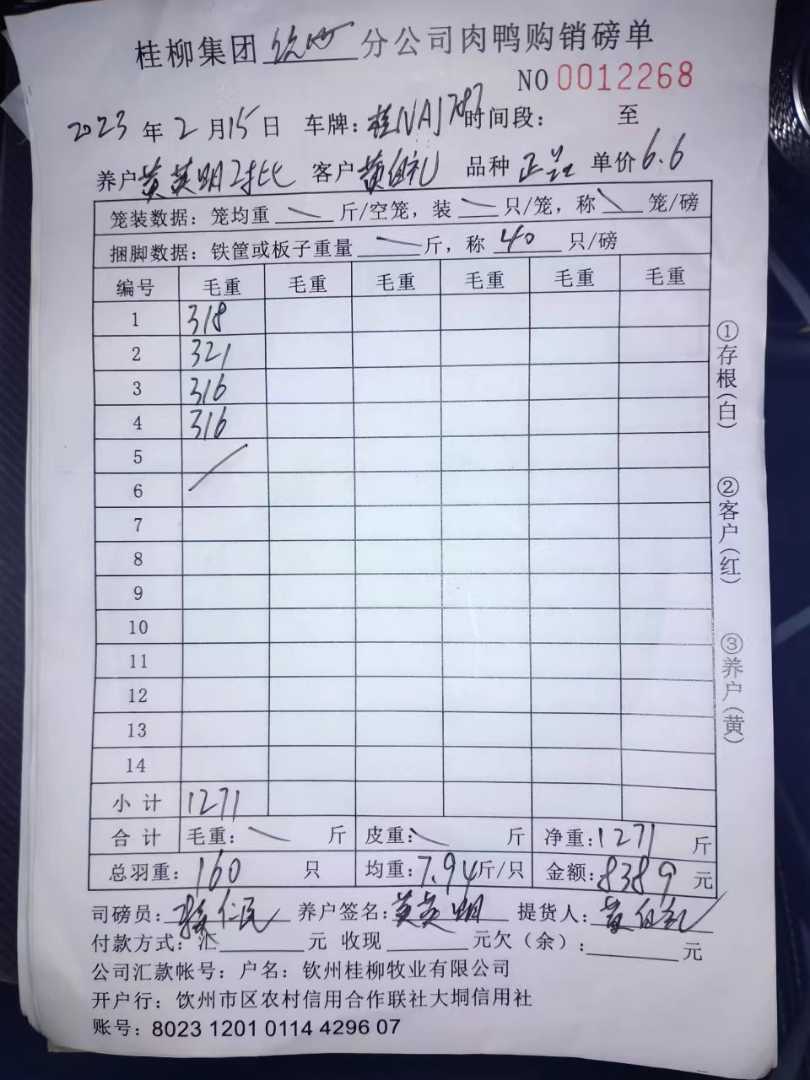 桂柳集团 钦州 分公司肉鸭购销磅单
NO 0012268
2023 年 2 月 15 日 车牌: 桂NAJ787 时间段: 至
养户 黄英明 客户 黄伯礼 品种 正兰 单价 6.6
笼装数据: 笼均重 斤/空笼, 装 只/笼, 称 笼/磅
捆脚数据: 铁筐或板子重量 斤, 称 40 只/磅
编号 毛重 毛重 毛重 毛重 毛重 毛重
1 318
2 321
3 316
4 316
5
6
7
8
9
10
11
12
13
14
小计 1271
合计 毛重: 斤 皮重: 斤 净重: 1271 斤
总羽重: 160 只 均重: 7.94 斤/只 金额: 8389 元
司磅员: 仁民 养户签名: 黄英明 提货人: 黄伯礼
付款方式: 汇 元 收现 元欠(余): 元
公司汇款帐号: 户名: 钦州桂柳牧业有限公司
开户行: 饮州市区农村信用合作联社大垌信用社
账号: 8023 1201 0114 4296 07
①存根(白)
②客户(红)
③养户(黄)